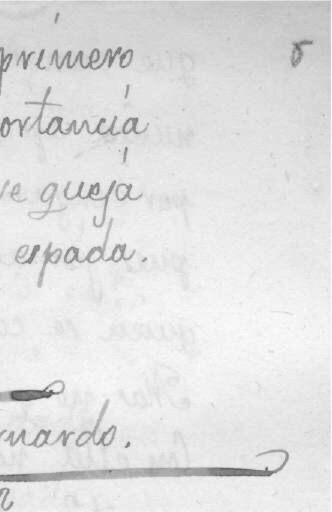 primero
ortancia
ve quejá
espada.
rnardo.